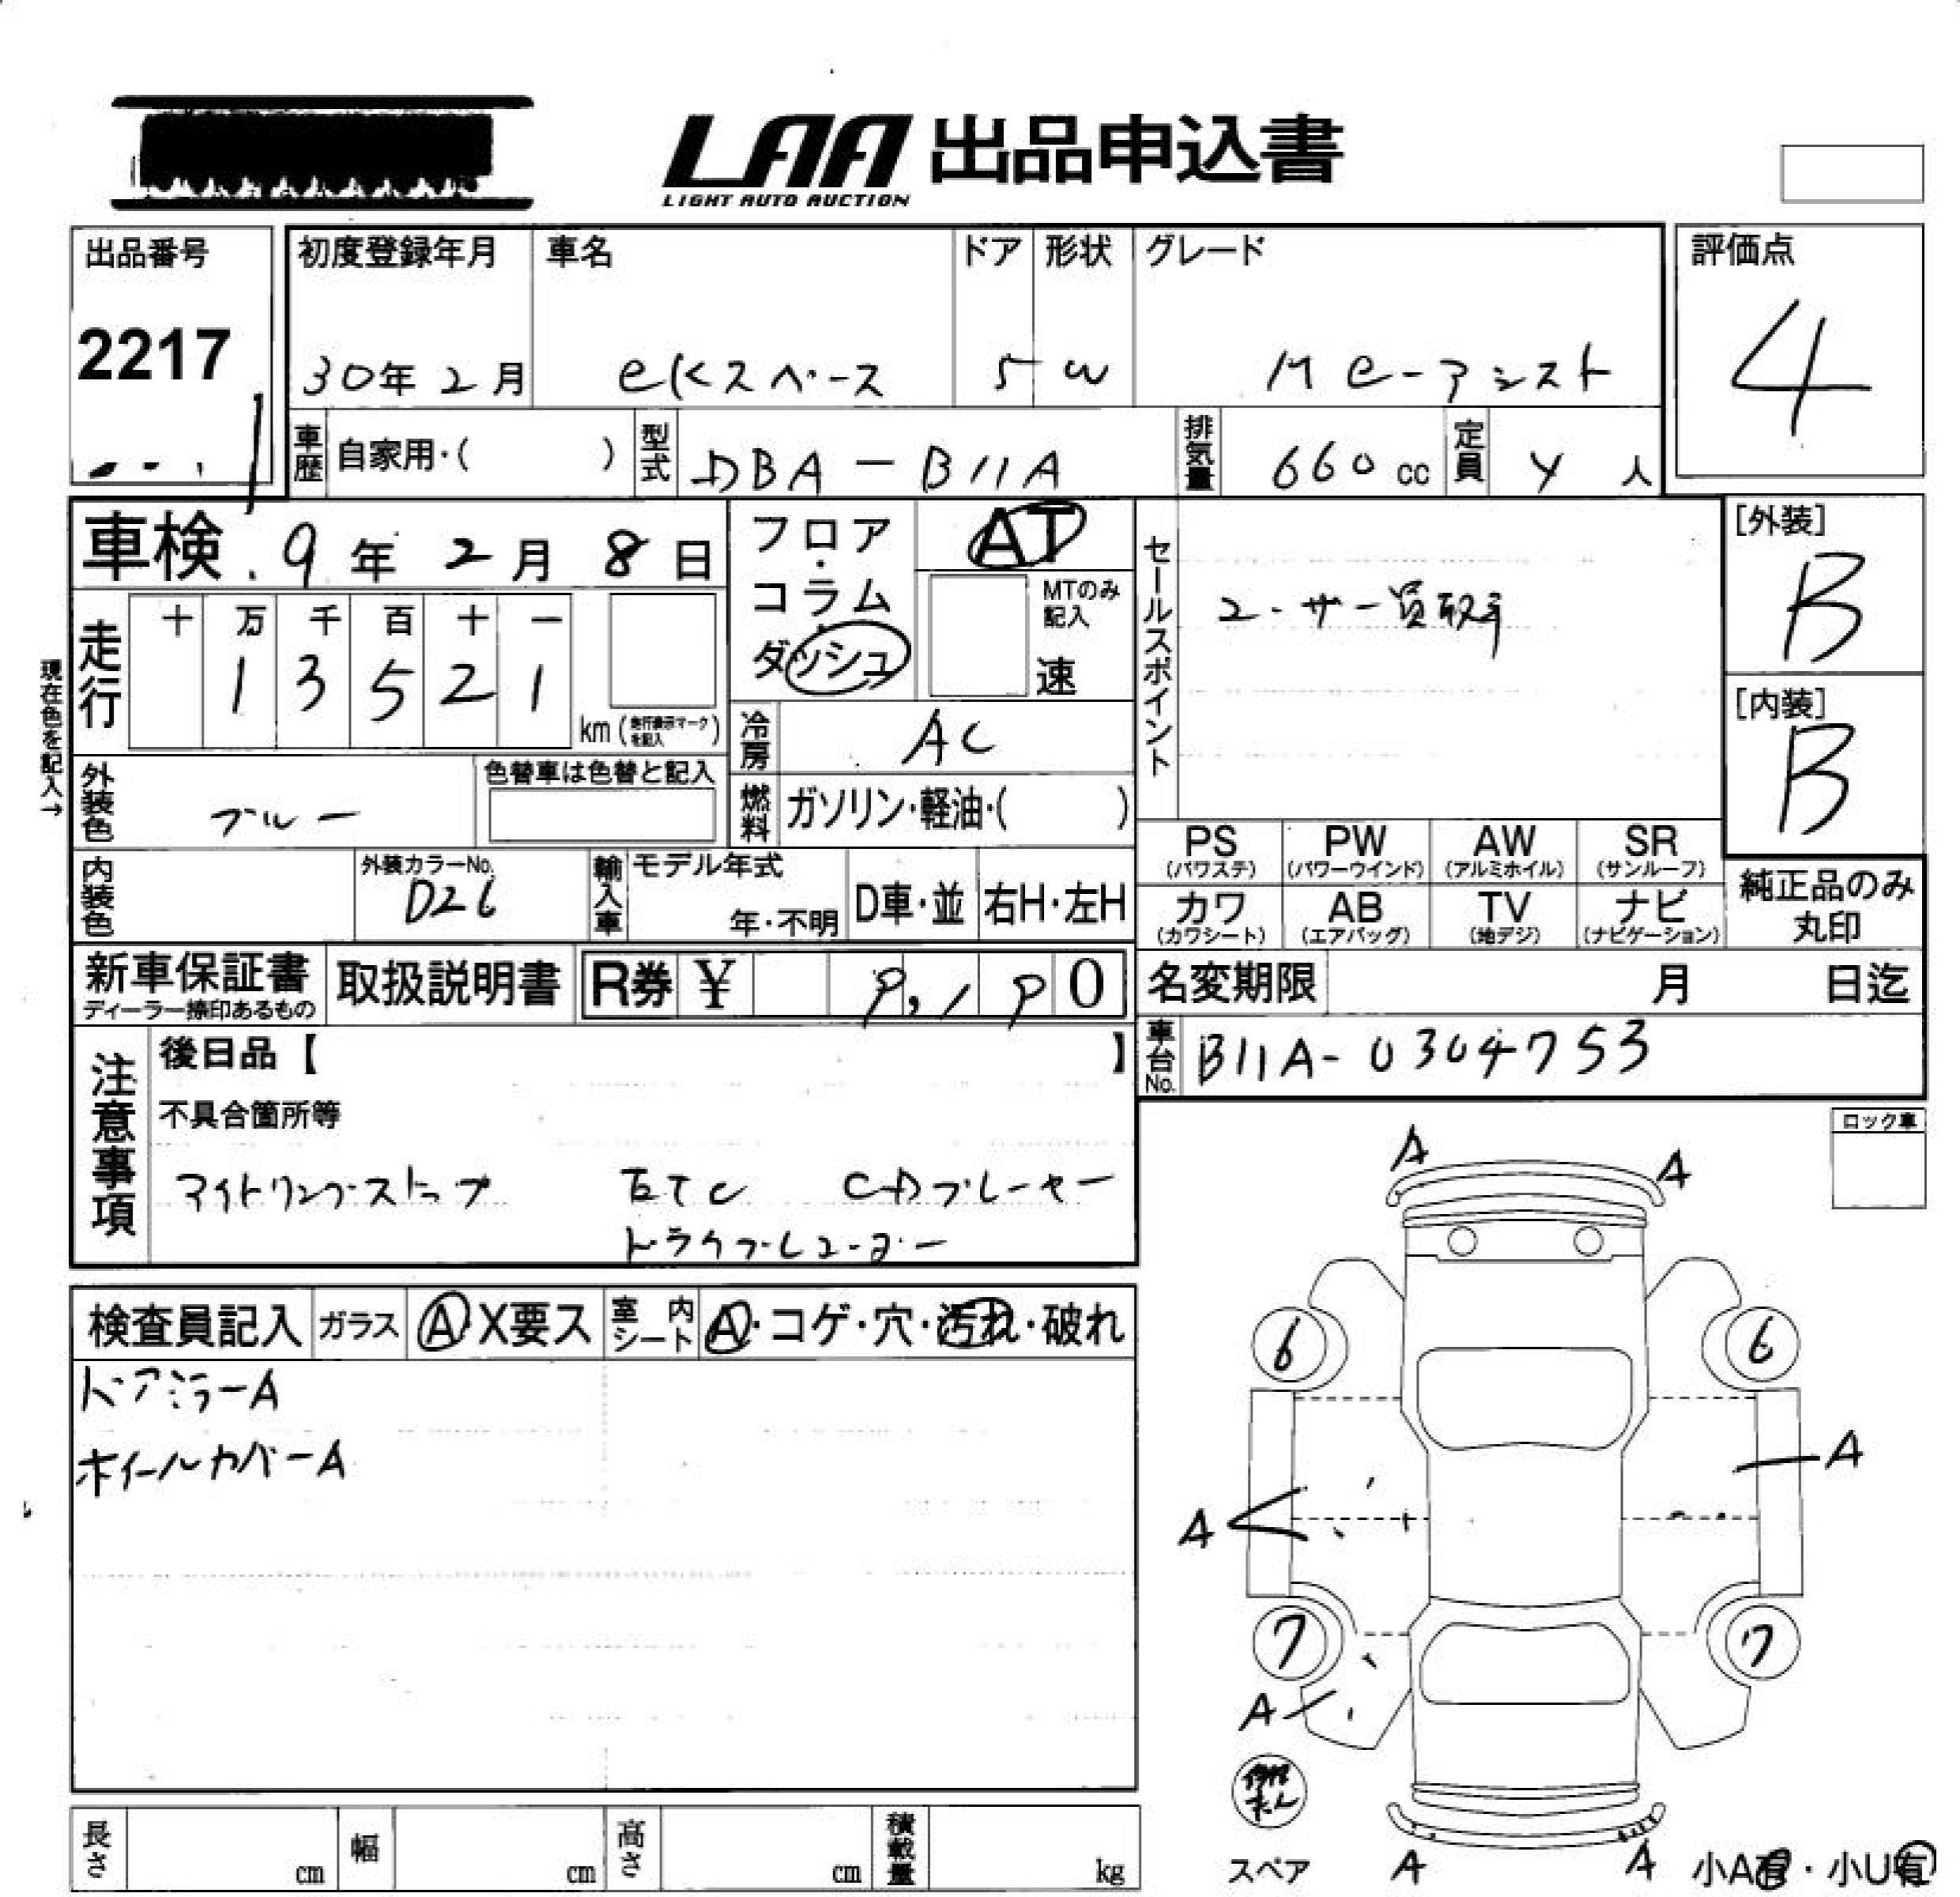 LAA 出品申込書
LIGHT AUTO AUCTION
出品番号
2217
初度登録年月
30年 2月
車名
eKスペース
ドア
5
形状
W
グレード
M e-アシスト
評価点
4
車歴 自家用・( )
型式 DBA-B11A
排気量 660 cc
定員 4 人
車検 9年 2月 8日
フロア・コラム・ダッシュ
AT
MTのみ記入
速
セールスポイント
ユーザー買取車
[外装]
B
[内装]
B
現在色を記入→
走行
十 万 千 百 十 一
1 3 5 2 1
km (走行表示マークを記入)
冷房 AC
外装色 ブルー
色替車は色替と記入
燃料 ガソリン・軽油・( )
PS (パワステ)
PW (パワーウインド)
AW (アルミホイル)
SR (サンルーフ)
カワ (カワシート)
AB (エアバッグ)
TV (地デジ)
ナビ (ナビゲーション)
純正品のみ丸印
内装色
外装カラーNo.
D26
輸入車
モデル年式
年・不明
D車・並
右H・左H
新車保証書
ディーラー捺印あるもの
取扱説明書
R券 ¥ 0
名変期限 月 日迄
車台No. B11A-0304753
注意事項
後日品【 】
不具合箇所等
アイドリングストップ ETC CDプレーヤー
ドライブレコーダー
ロック車
検査員記入
ガラス Ⓐ X要ス
室内シート Ⓐ・コゲ・穴・汚れ・破れ
ドアミラーA
ホイールカバーA
A
A
6
6
A
A
7
7
A
スペア
A
A
小A有・小U有
長さ cm
幅 cm
高さ cm
積載量 kg